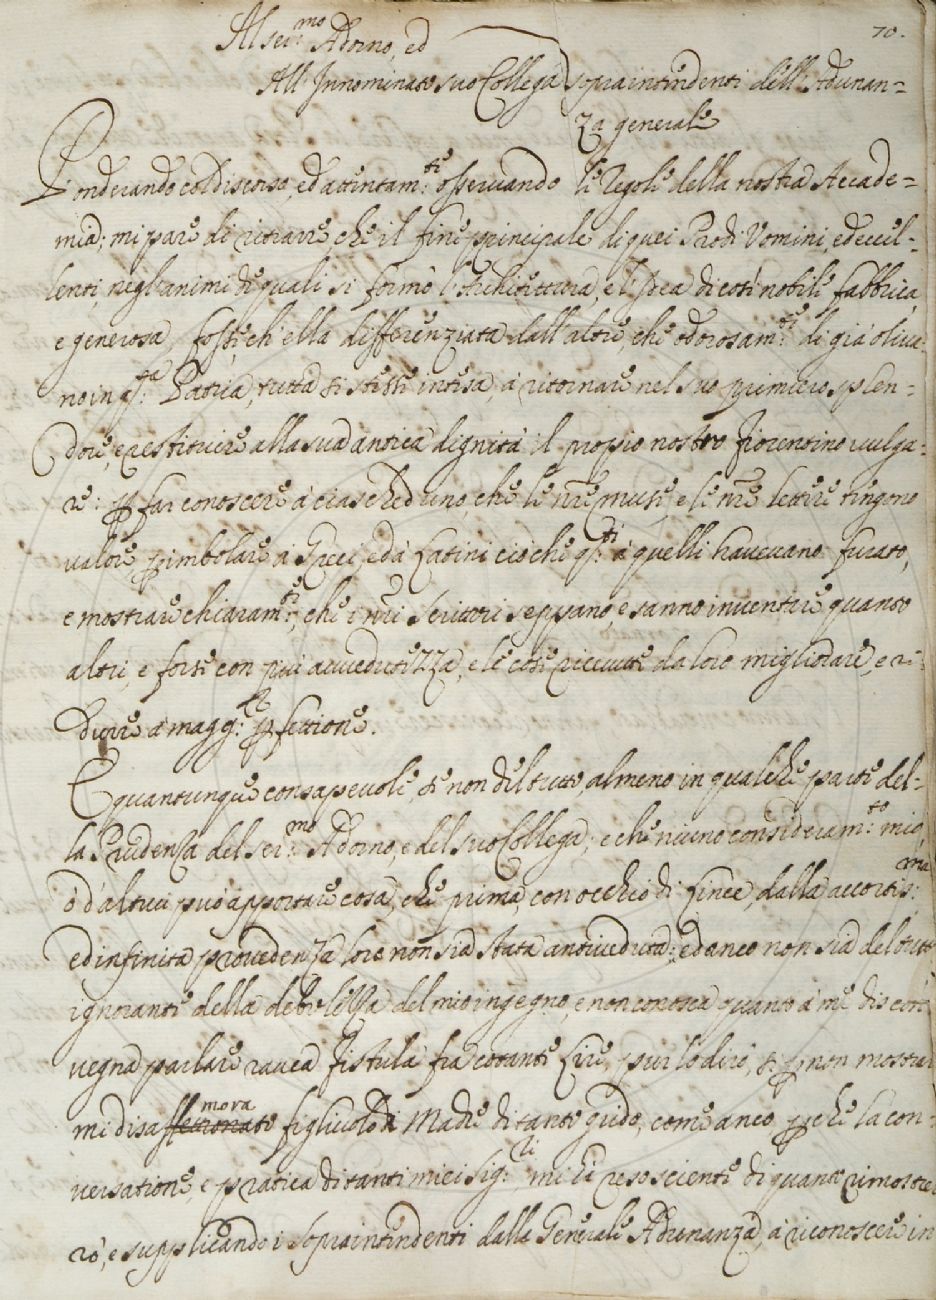 70.
Al ser:mo Adorno, ed
All' Innominato suo Collega sopraintendenti dell' Adunan=
za generale
Ponderando col discorso, ed attentam:te osservando le regole della nostra Accade=
mia; mi pare di ritrarre che il fine principale di quei Prodi Uomini, ed eccel=
lenti, negl'animi de quali si formò l'Architettura, e l'Idea di così nobile fabbrica,
e generosa fosse, ch' ella differenziata dall' altre, che odorosam:te di già oliva=
no in q:ta Patria, tutta si stesse intesa, à ritornare nel suo primiero splen=
dore, e restituire alla sua antica dignità il propio nostro fiorentino vulga=
re: p far conoscere à ciascheduno, che le nre muse, e le nre lettere tengono
valore, p imbolare a Greci, ed à Latini ciò che q:ti à quelli havevano furato,
e mostrare chiaram:te, che i nri scrittori seppano, e sanno inventare quanto
altri, e forse con più avvedutezza, e le cose ricevute da loro migliorare, e ri=
durre à magg:re pfettione.
E quantunque consapevole, se non del tutto, almeno in qualche parte del=
la Prudenza del ser:mo Adorno, e del suo Collega; e che niuno consideram:to mio,
ò d'altrui può apportare cosa, che prima, con occhio di Lince, dalla accortis:ma
ed infinita provedenza loro non sia stata antiveduta: ed anco non sia del tutto
ignorante della debolezza del mio ingegno, e non conosca quanto à me discon
vegna parlare rauca fistula fra cotante Lire, pur lo dirò, si p non mostrar
mi disaffettionato mora figliuolo di Madre di tanto grido, come anco pche la con=
versatione, e pratica di tanti miei sig:ri mi hà reso sciente di quanto rimostre
rò, e supplicando i sopraintendenti dalla Generale Adunanza, à riconoscere in